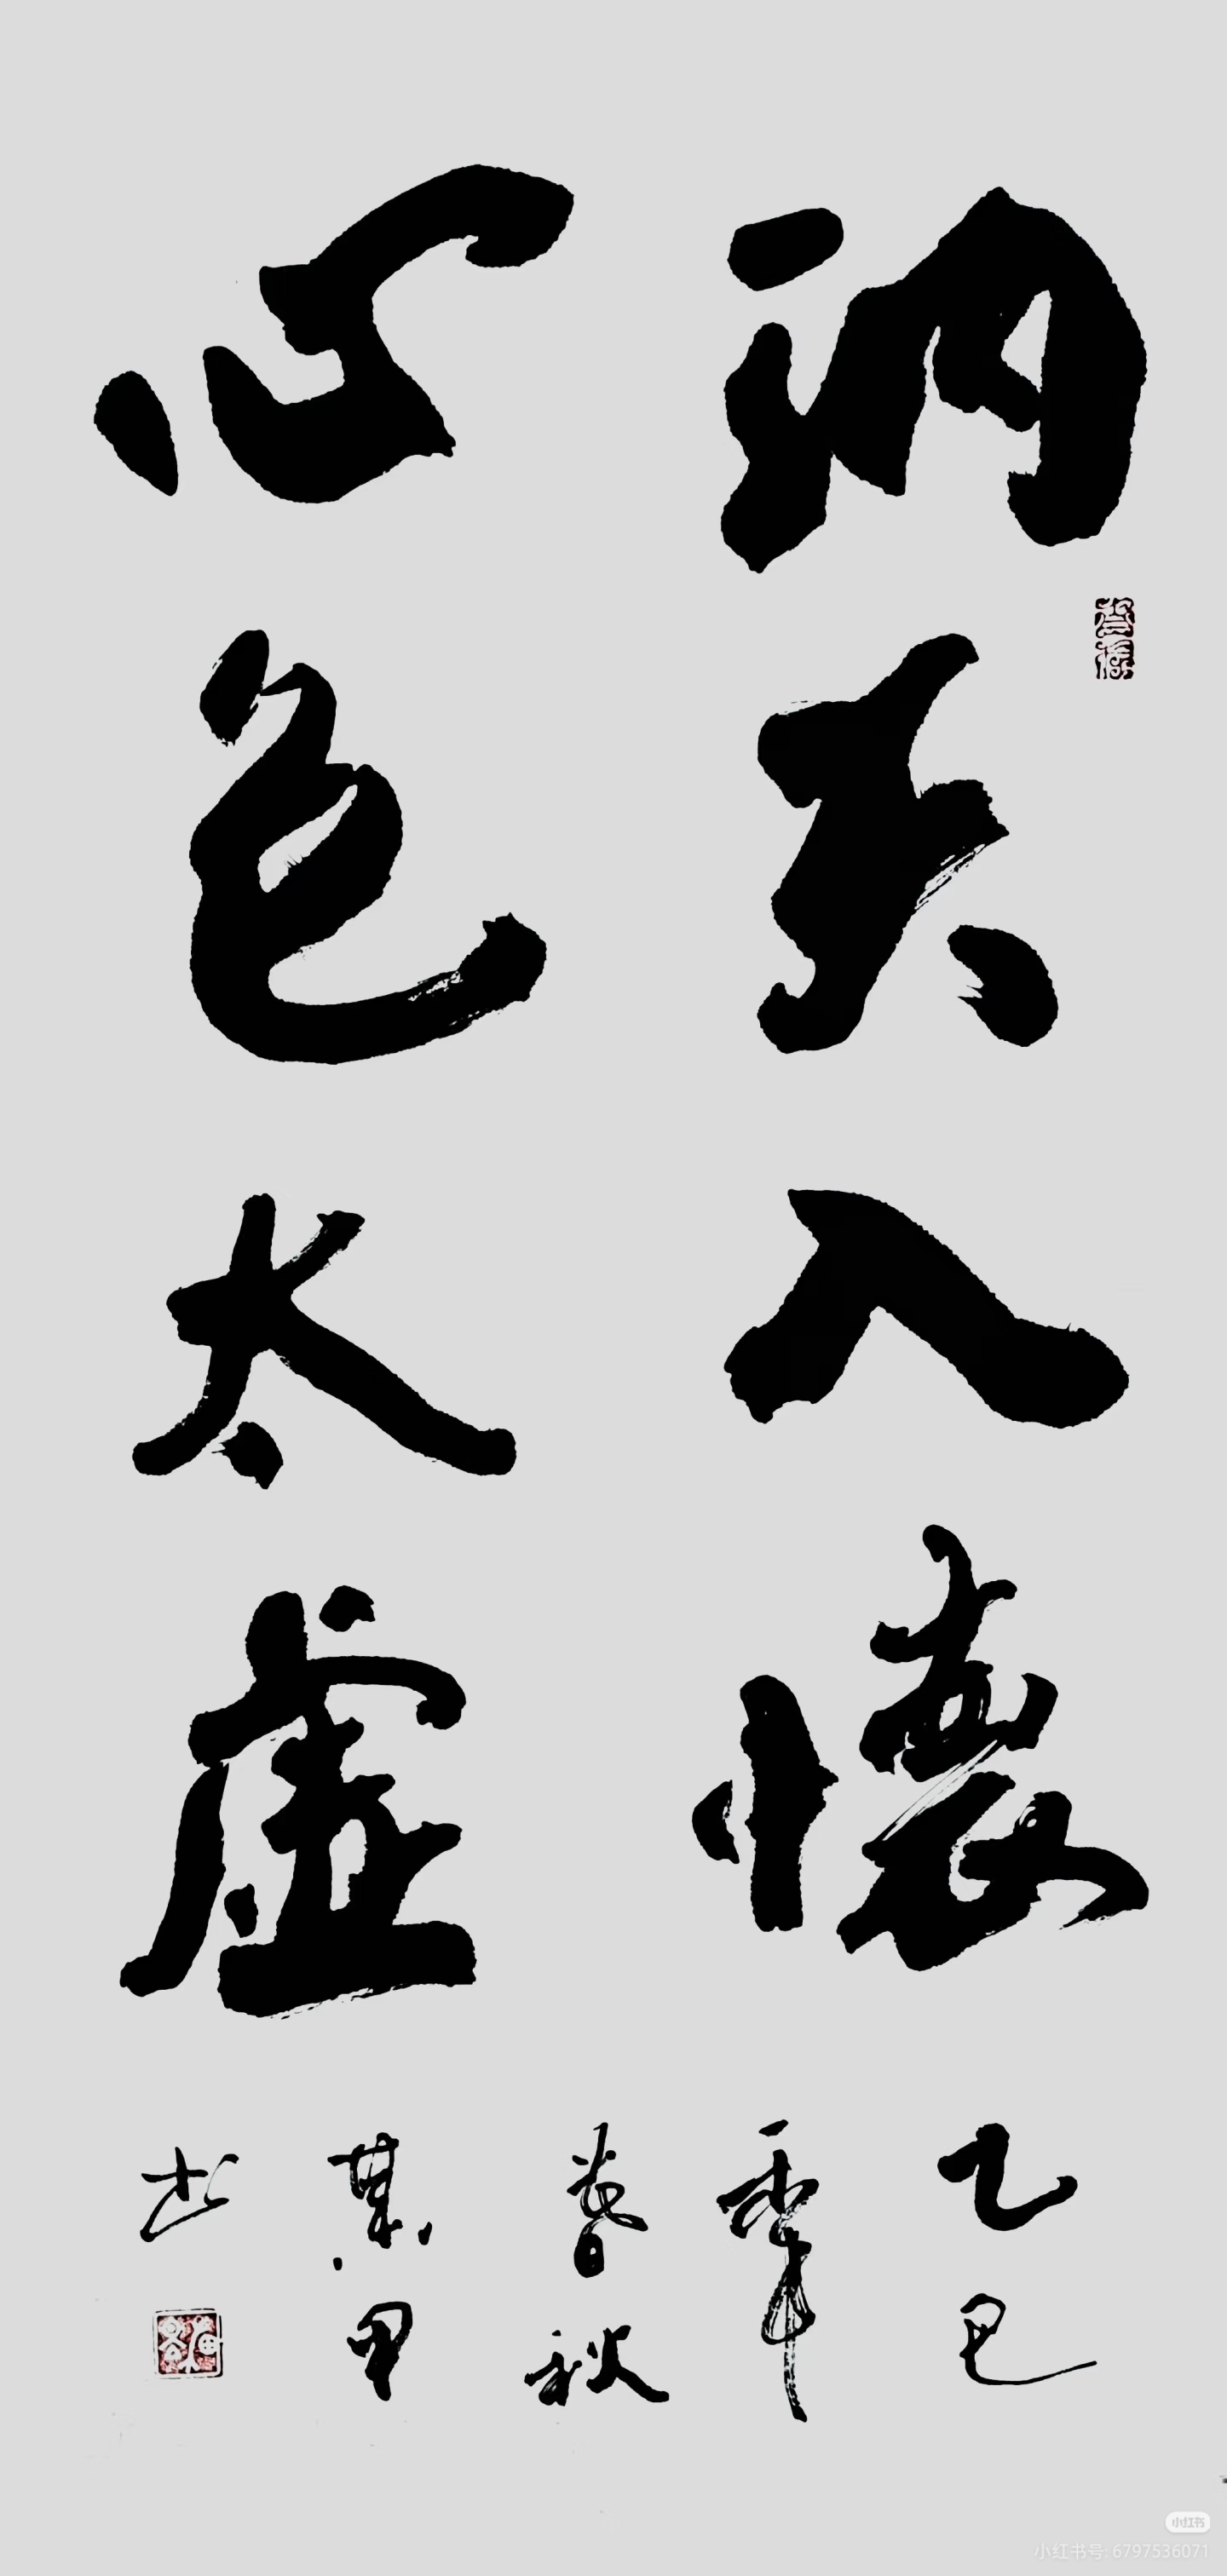 納天入懷
心包太虚
乙巳
年
春秋
某甲
书
小红书
小红书号: 6797536071